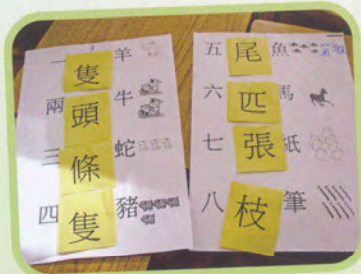 一隻羊
兩頭牛
三條蛇
四隻豬
五尾魚
六匹馬
七張紙
八枝筆